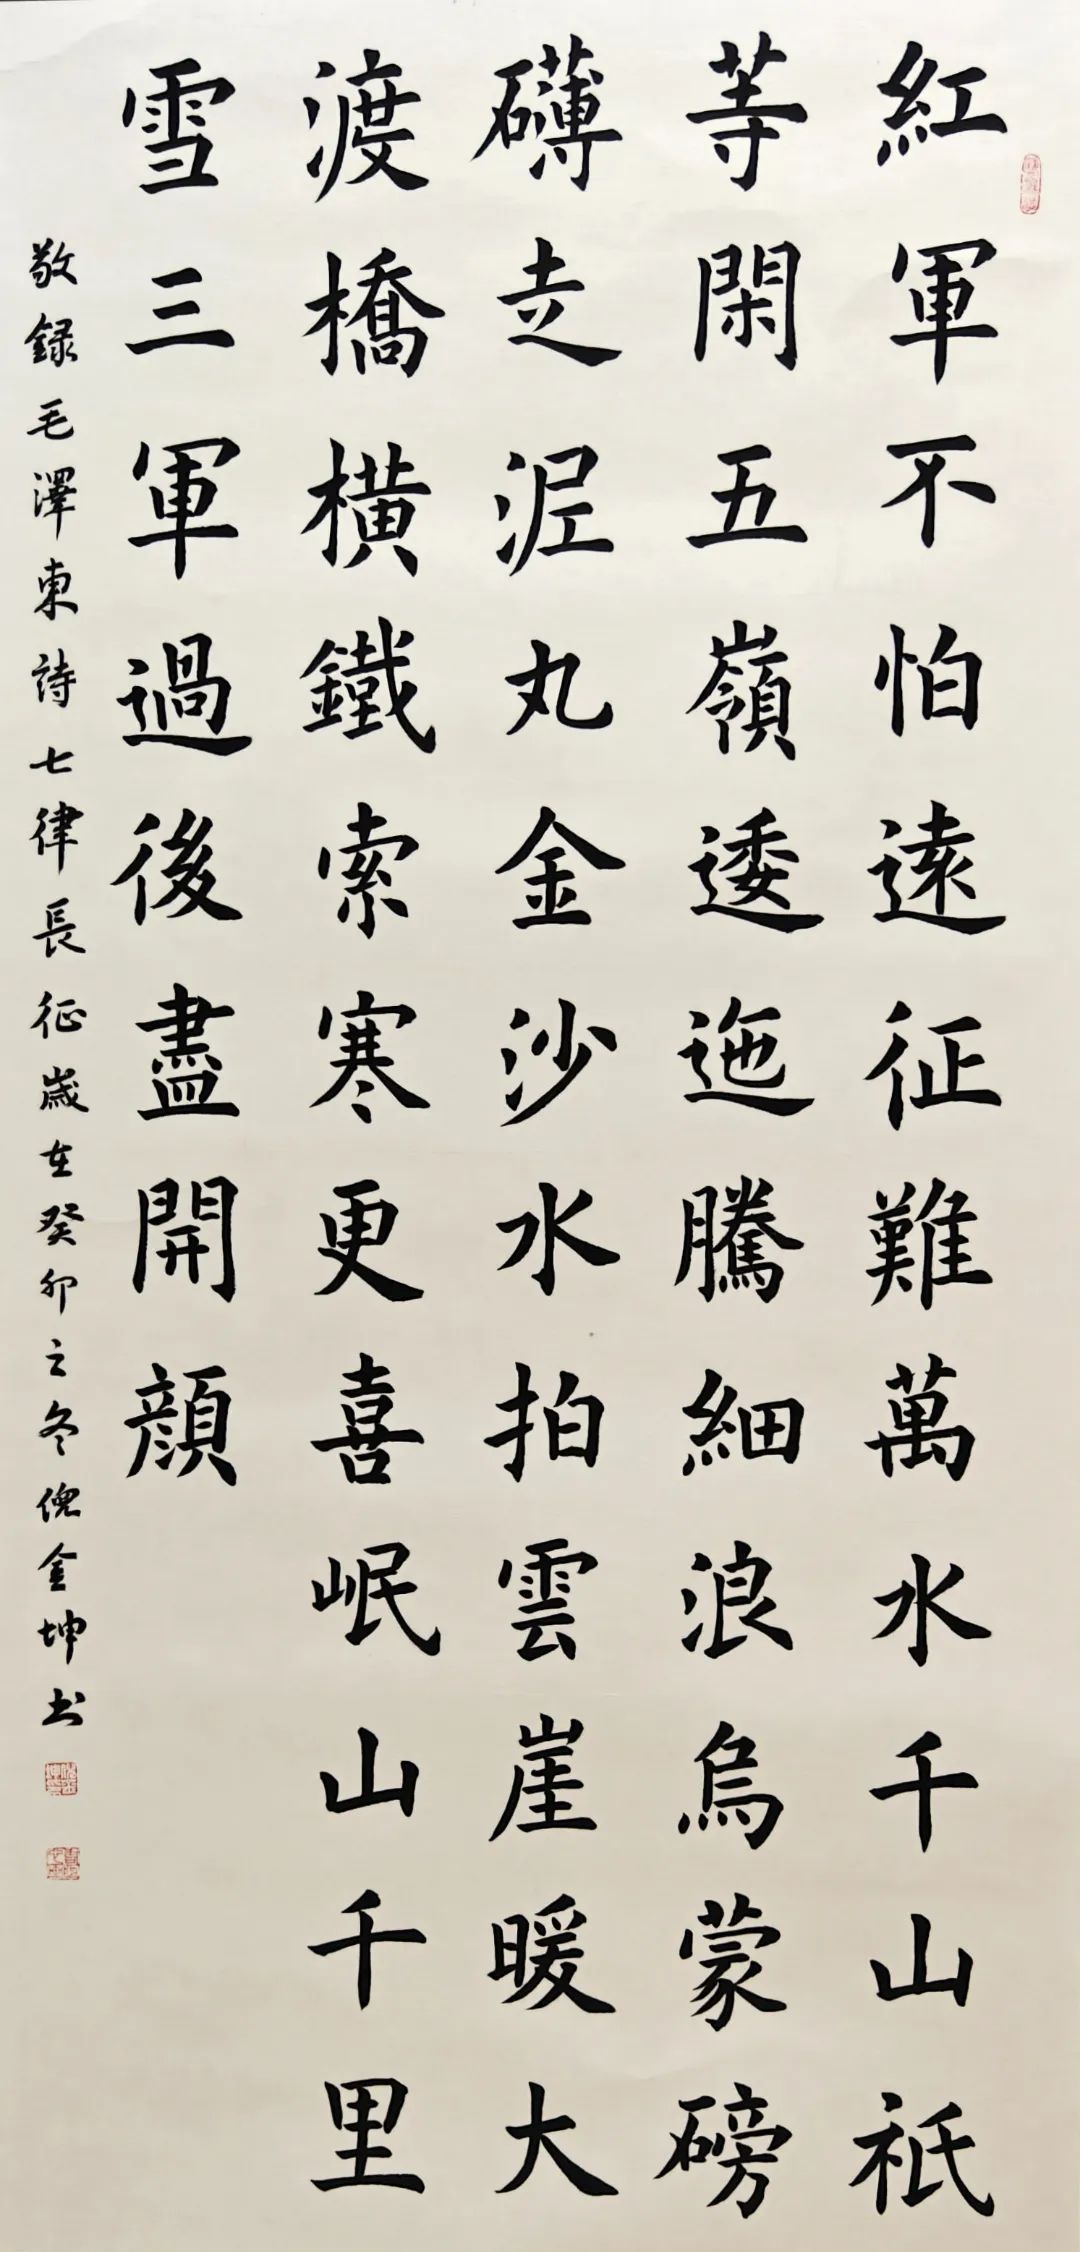 紅軍不怕遠征難萬水千山祇
等閑五嶺逶迤騰細浪烏蒙磅
礴走泥丸金沙水拍雲崖暖大
渡橋橫鐵索寒更喜岷山千里
雪三軍過後盡開顔
敬録毛澤東詩七律長征歲在癸卯之冬倪金坤书